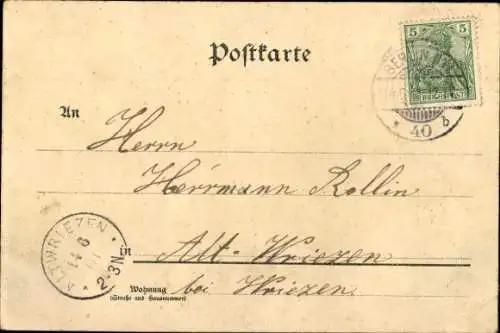 5 5
REICHSPOST
Postkarte
BERLIN
An
40 b
Herrn
Herrmann Kollin
ALTWRIEZEN
14 6
2-3N
in Alt-Wriezen
Wohnung bei Wriezen.
(Straße und Hausnummer)